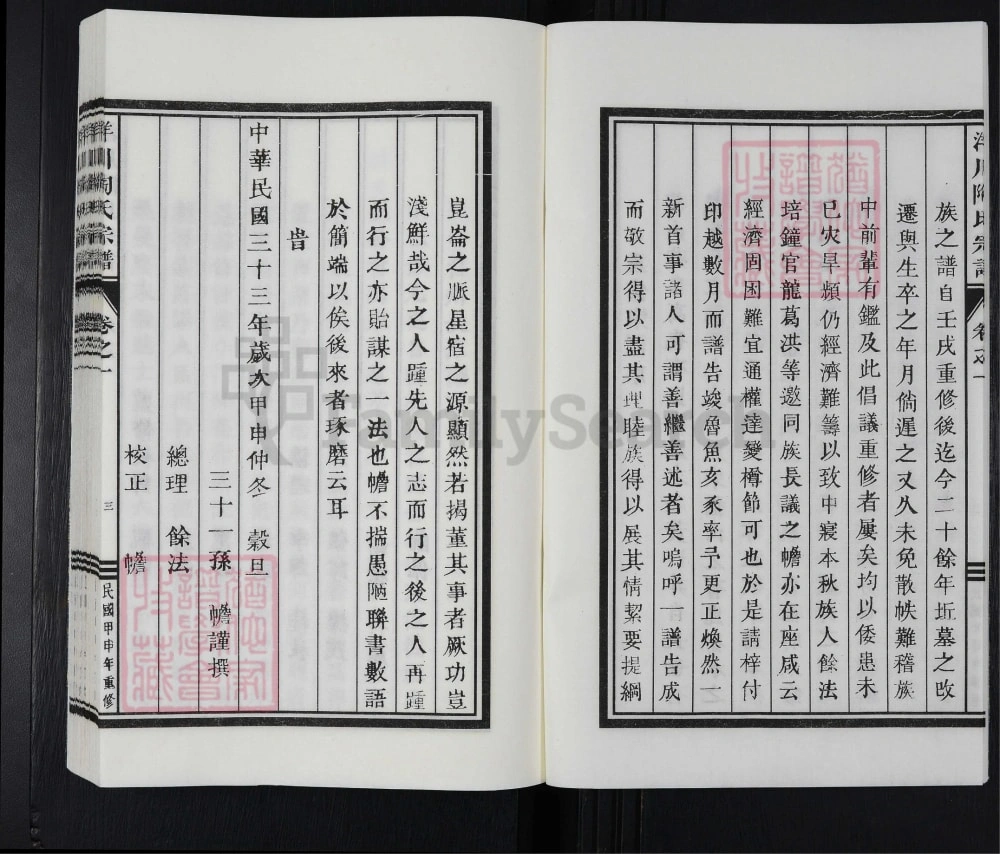 族之譜自壬戌重修後迄今二十餘年坵墓之改
遷與生卒之年月倘遲之又久未免散帙難稽族
中前輩有鑑及此倡議重修者屢矣均以倭患未
已灾旱頻仍經濟難籌以致中寢本秋族人餘法
培鐘官龍葛洪等邀同族長議之幨亦在座咸云
經濟固困難宜通權達變樽節可也於是請梓付
印越數月而譜告竣魯魚亥豕率予更正煥然一
新首事諸人可謂善繼善述者矣嗚呼一譜告成
而敬宗得以盡其理睦族得以展其情絜要提綱
崑崙之脈星宿之源顯然若揭董其事者厥功豈
淺鮮哉今之人踵先人之志而行之後之人再踵
而行之亦貽謀之一法也幨不揣愚陋聯書數語
於簡端以俟後來者琢磨云耳
旹
中華民國三十三年歲次甲申仲冬 穀旦
三十一孫 幨謹撰
總理 餘法
校正 幨
洋川陶氏宗譜 卷之一
三
民國甲申年重修
FamilySearch